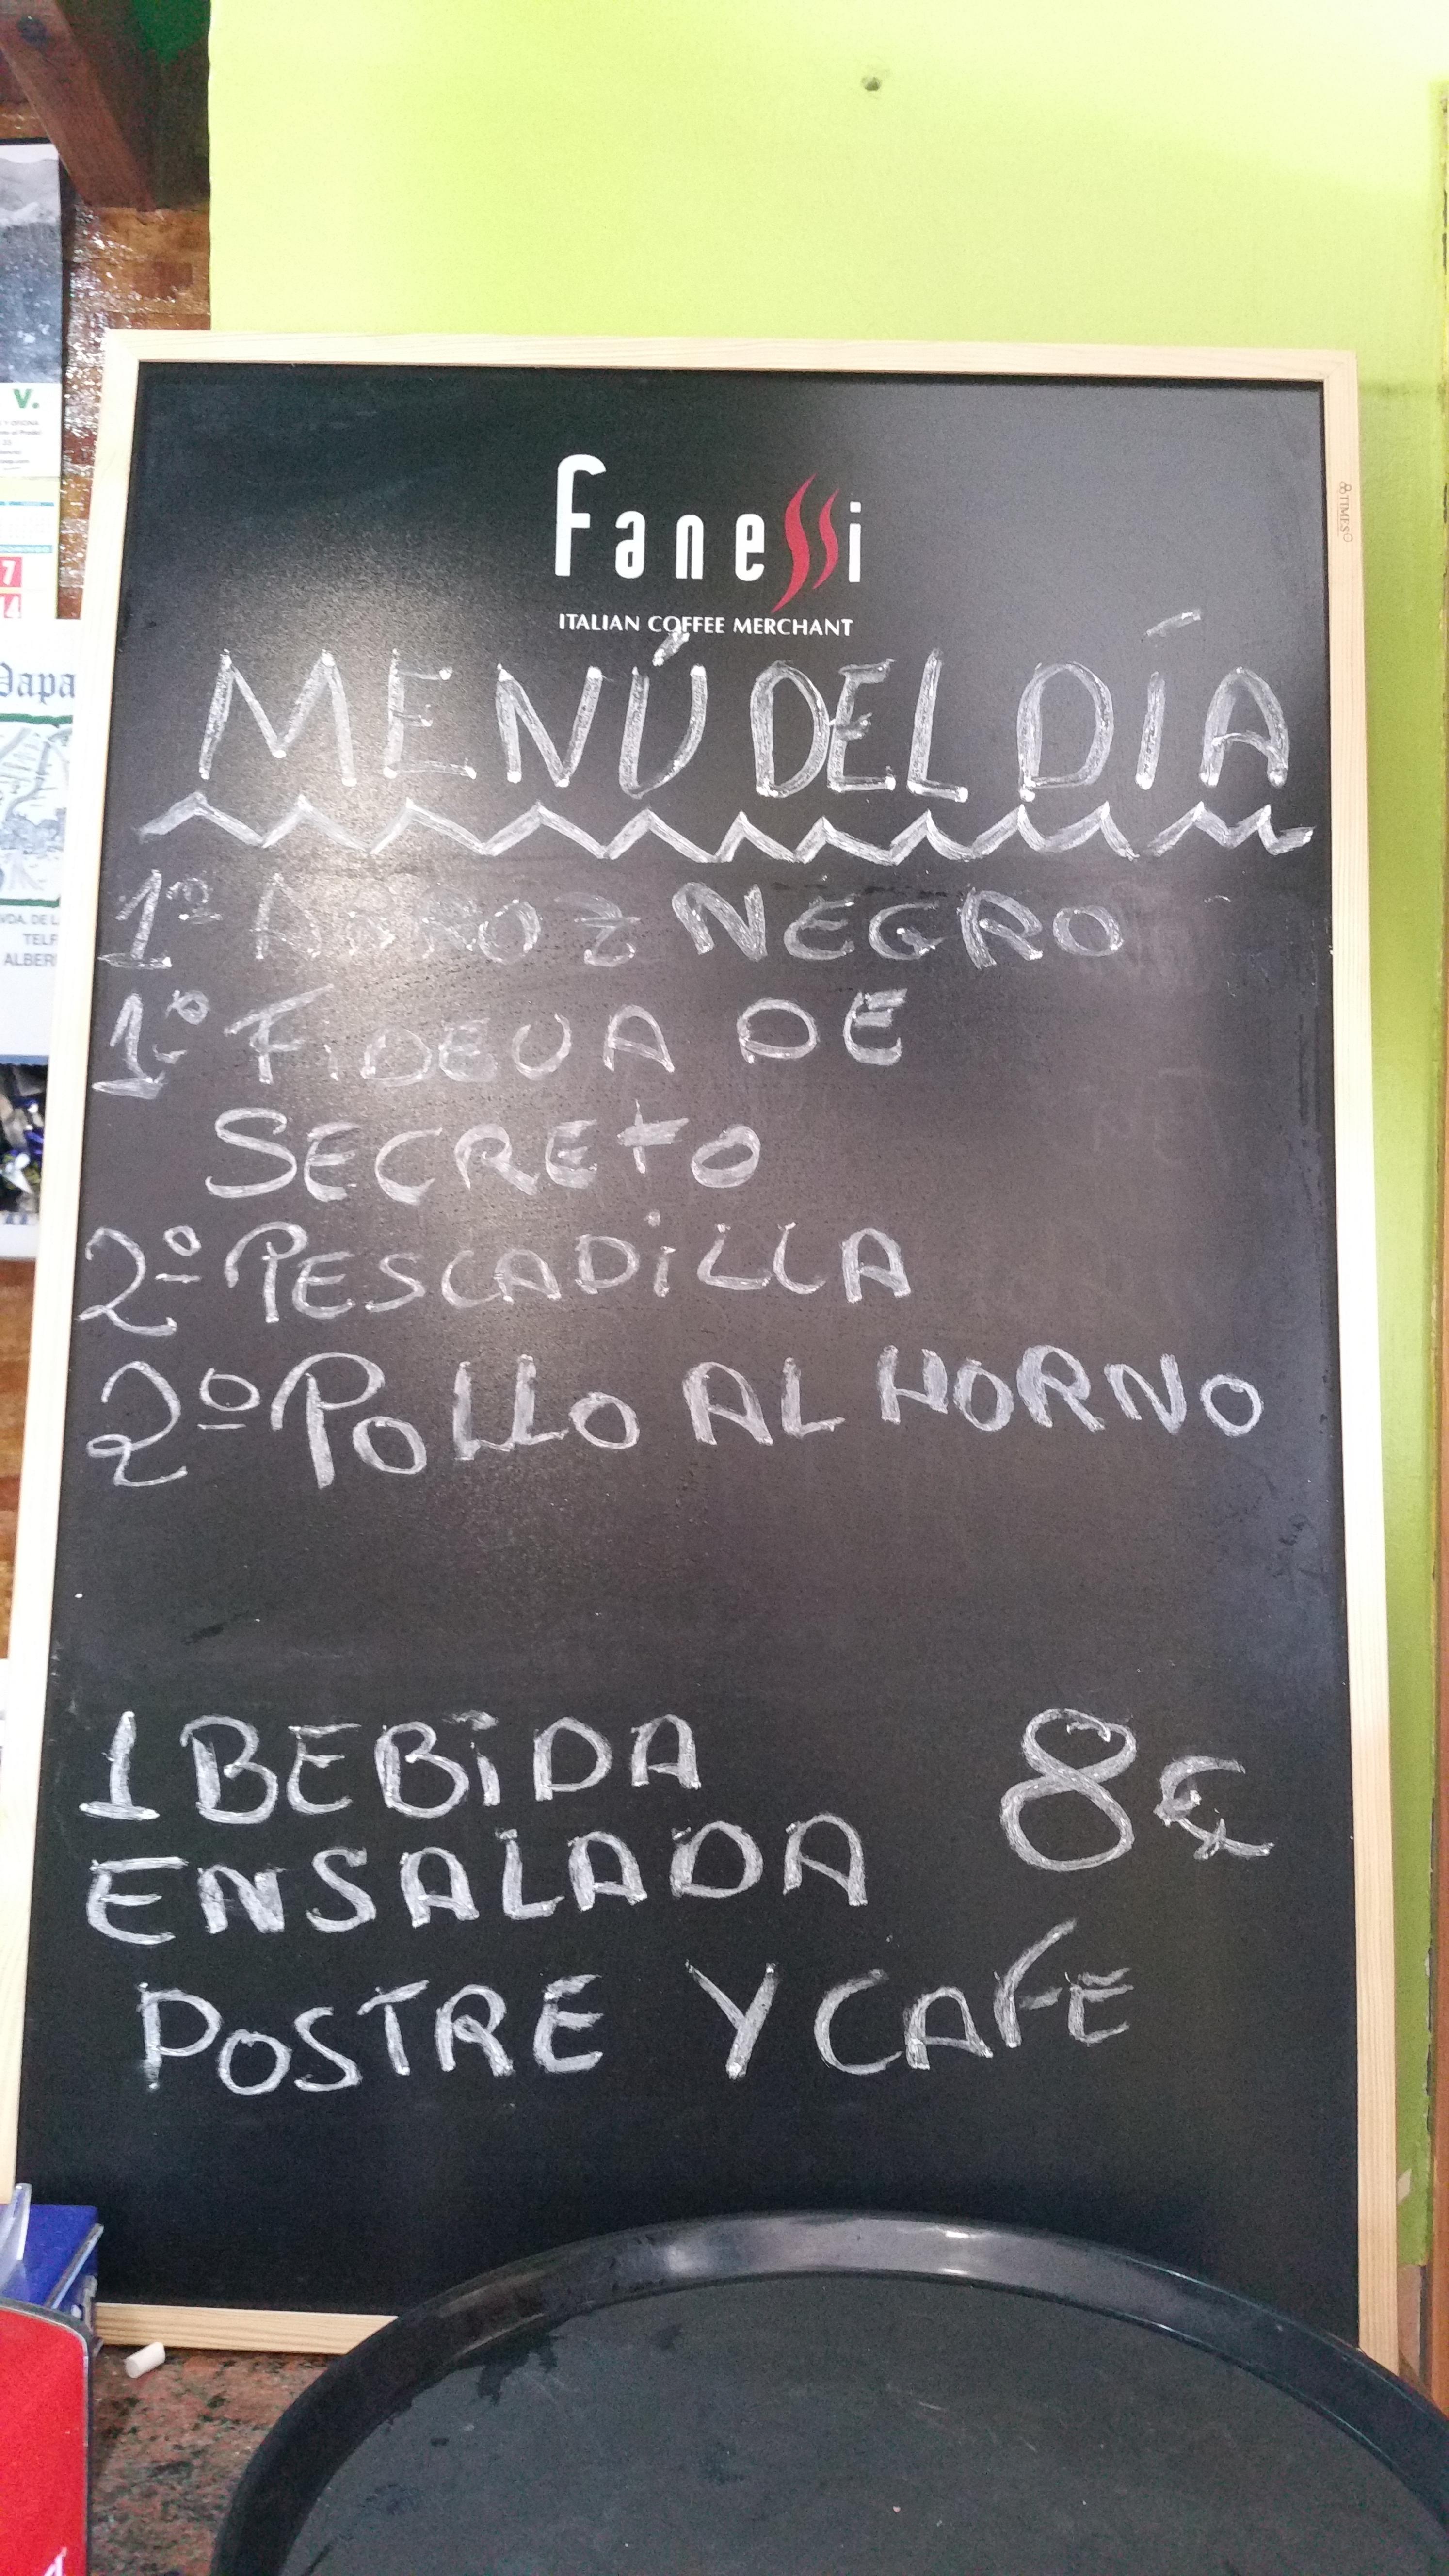 fanessi
ITALIAN COFFEE MERCHANT
MENÚ DEL DÍA
1º ARROZ NEGRO
1º FIDEUA DE
SECRETO
2º PESCADILLA
2º POLLO AL HORNO
1 BEBIDA
8€
ENSALADA
POSTRE Y CAFE
V.
7
14
TELF
TIMES